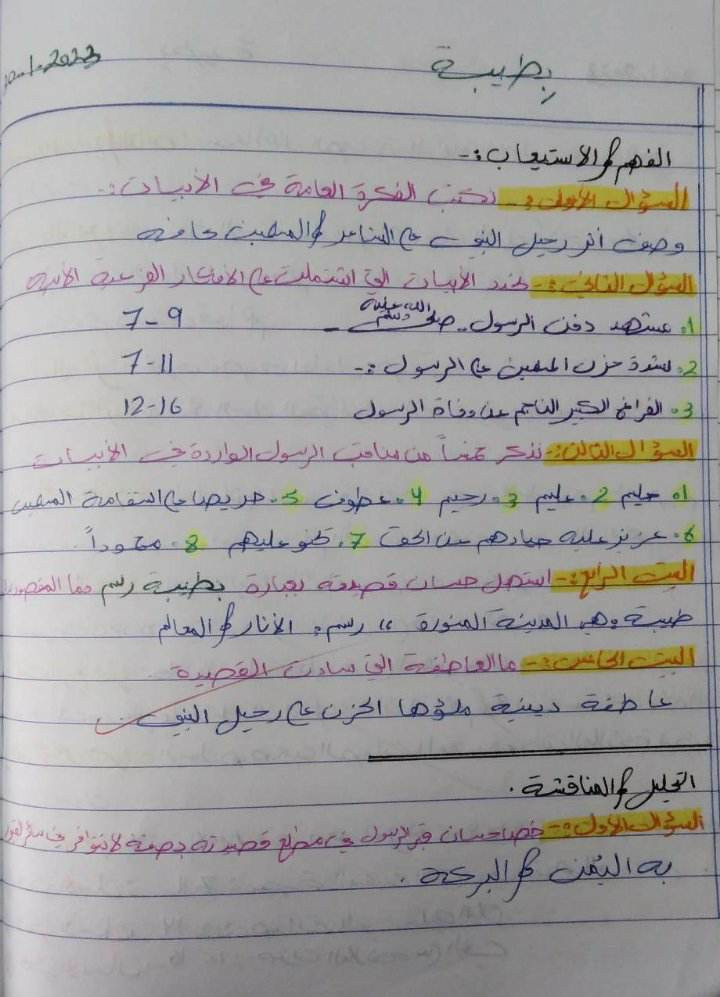 بطيبة
10.1.2023
الفهم والاستيعاب :-
السؤال الأول :- نكتب الفكرة العامة في الأبيات :-
وصف أثر رحيل النبي على الشاعر والمسلمين خاصة
السؤال الثاني :- نحدد الأبيات التي اشتملت على الأفكار الفرعية الآتية
1. مشهد دفن الرسول - صلى الله عليه وسلم - 7-9
2. شدة حزن المسلمين على الرسول :- 7-11
3. الفراغ الكبير الناجم عن وفاة الرسول 12-16
السؤال الثالث :- نذكر بعضاً من مناقب الرسول الواردة في الأبيات
1. حليم 2. عليم 3. رحيم 4. عطوف 5. حريصا على استقامة المسلمين
6. عزيز عليه حيادهم عن الحق 7. يحنو عليهم 8. محموداً.
البيت الرابع :- استهل حسان قصيدته بعبارة بطيبة رسم فما المقصود
طيبة : هي المدينة المنورة ،، رسم : الآثار والمعالم
البيت الخامس :- ما العاطفة التي سادت القصيدة
عاطفة دينية ملؤها الحزن على رحيل النبي .
التحليل والمناقشة .
السؤال الأول :- خص حسان قبر الرسول في مطلع قصيدته بصفة لا تتوافر في سائر القبور
به اليُمن والبركة .